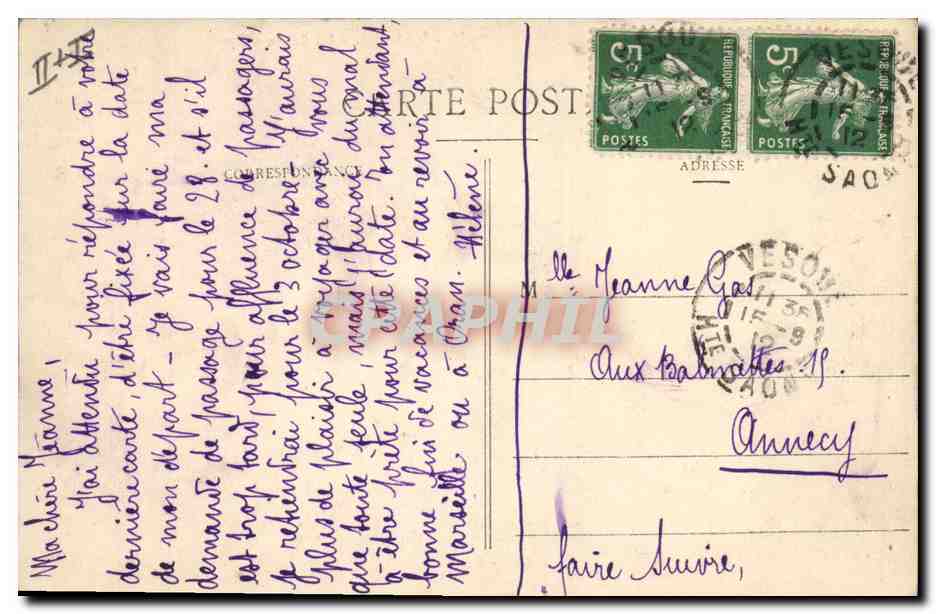 II + I
CARTE POST
CORRESPONDANCE
ADRESSE
Ma chère Jeanne,
J'ai attendu pour répondre à votre
dernière carte, d'être fixée sur la date
de mon départ - Je vais faire ma
demande de passage pour le 28. et s'il
est trop tard, pour affluence de passagers,
je retiendrai pour le 3 octobre. J'aurais
plus de plaisir à voyager avec vous
que toute seule, mais j'aurai du mal
à être prête pour cette date. En attendant
bonne fin de vacances et au revoir à
Marseille ou à Oran. Hélène
5c
REPUBLIQUE FRANÇAISE
POSTES
5c
REPUBLIQUE FRANÇAISE
POSTES
VESOUL
VESOUL
11
12
SAON
VESOUL
11 35
15 - 9
12
HTE SAON
Mlle Jeanne Gas
Aux Balmettes 15.
Annecy
faire suivre,
CPAPHIL